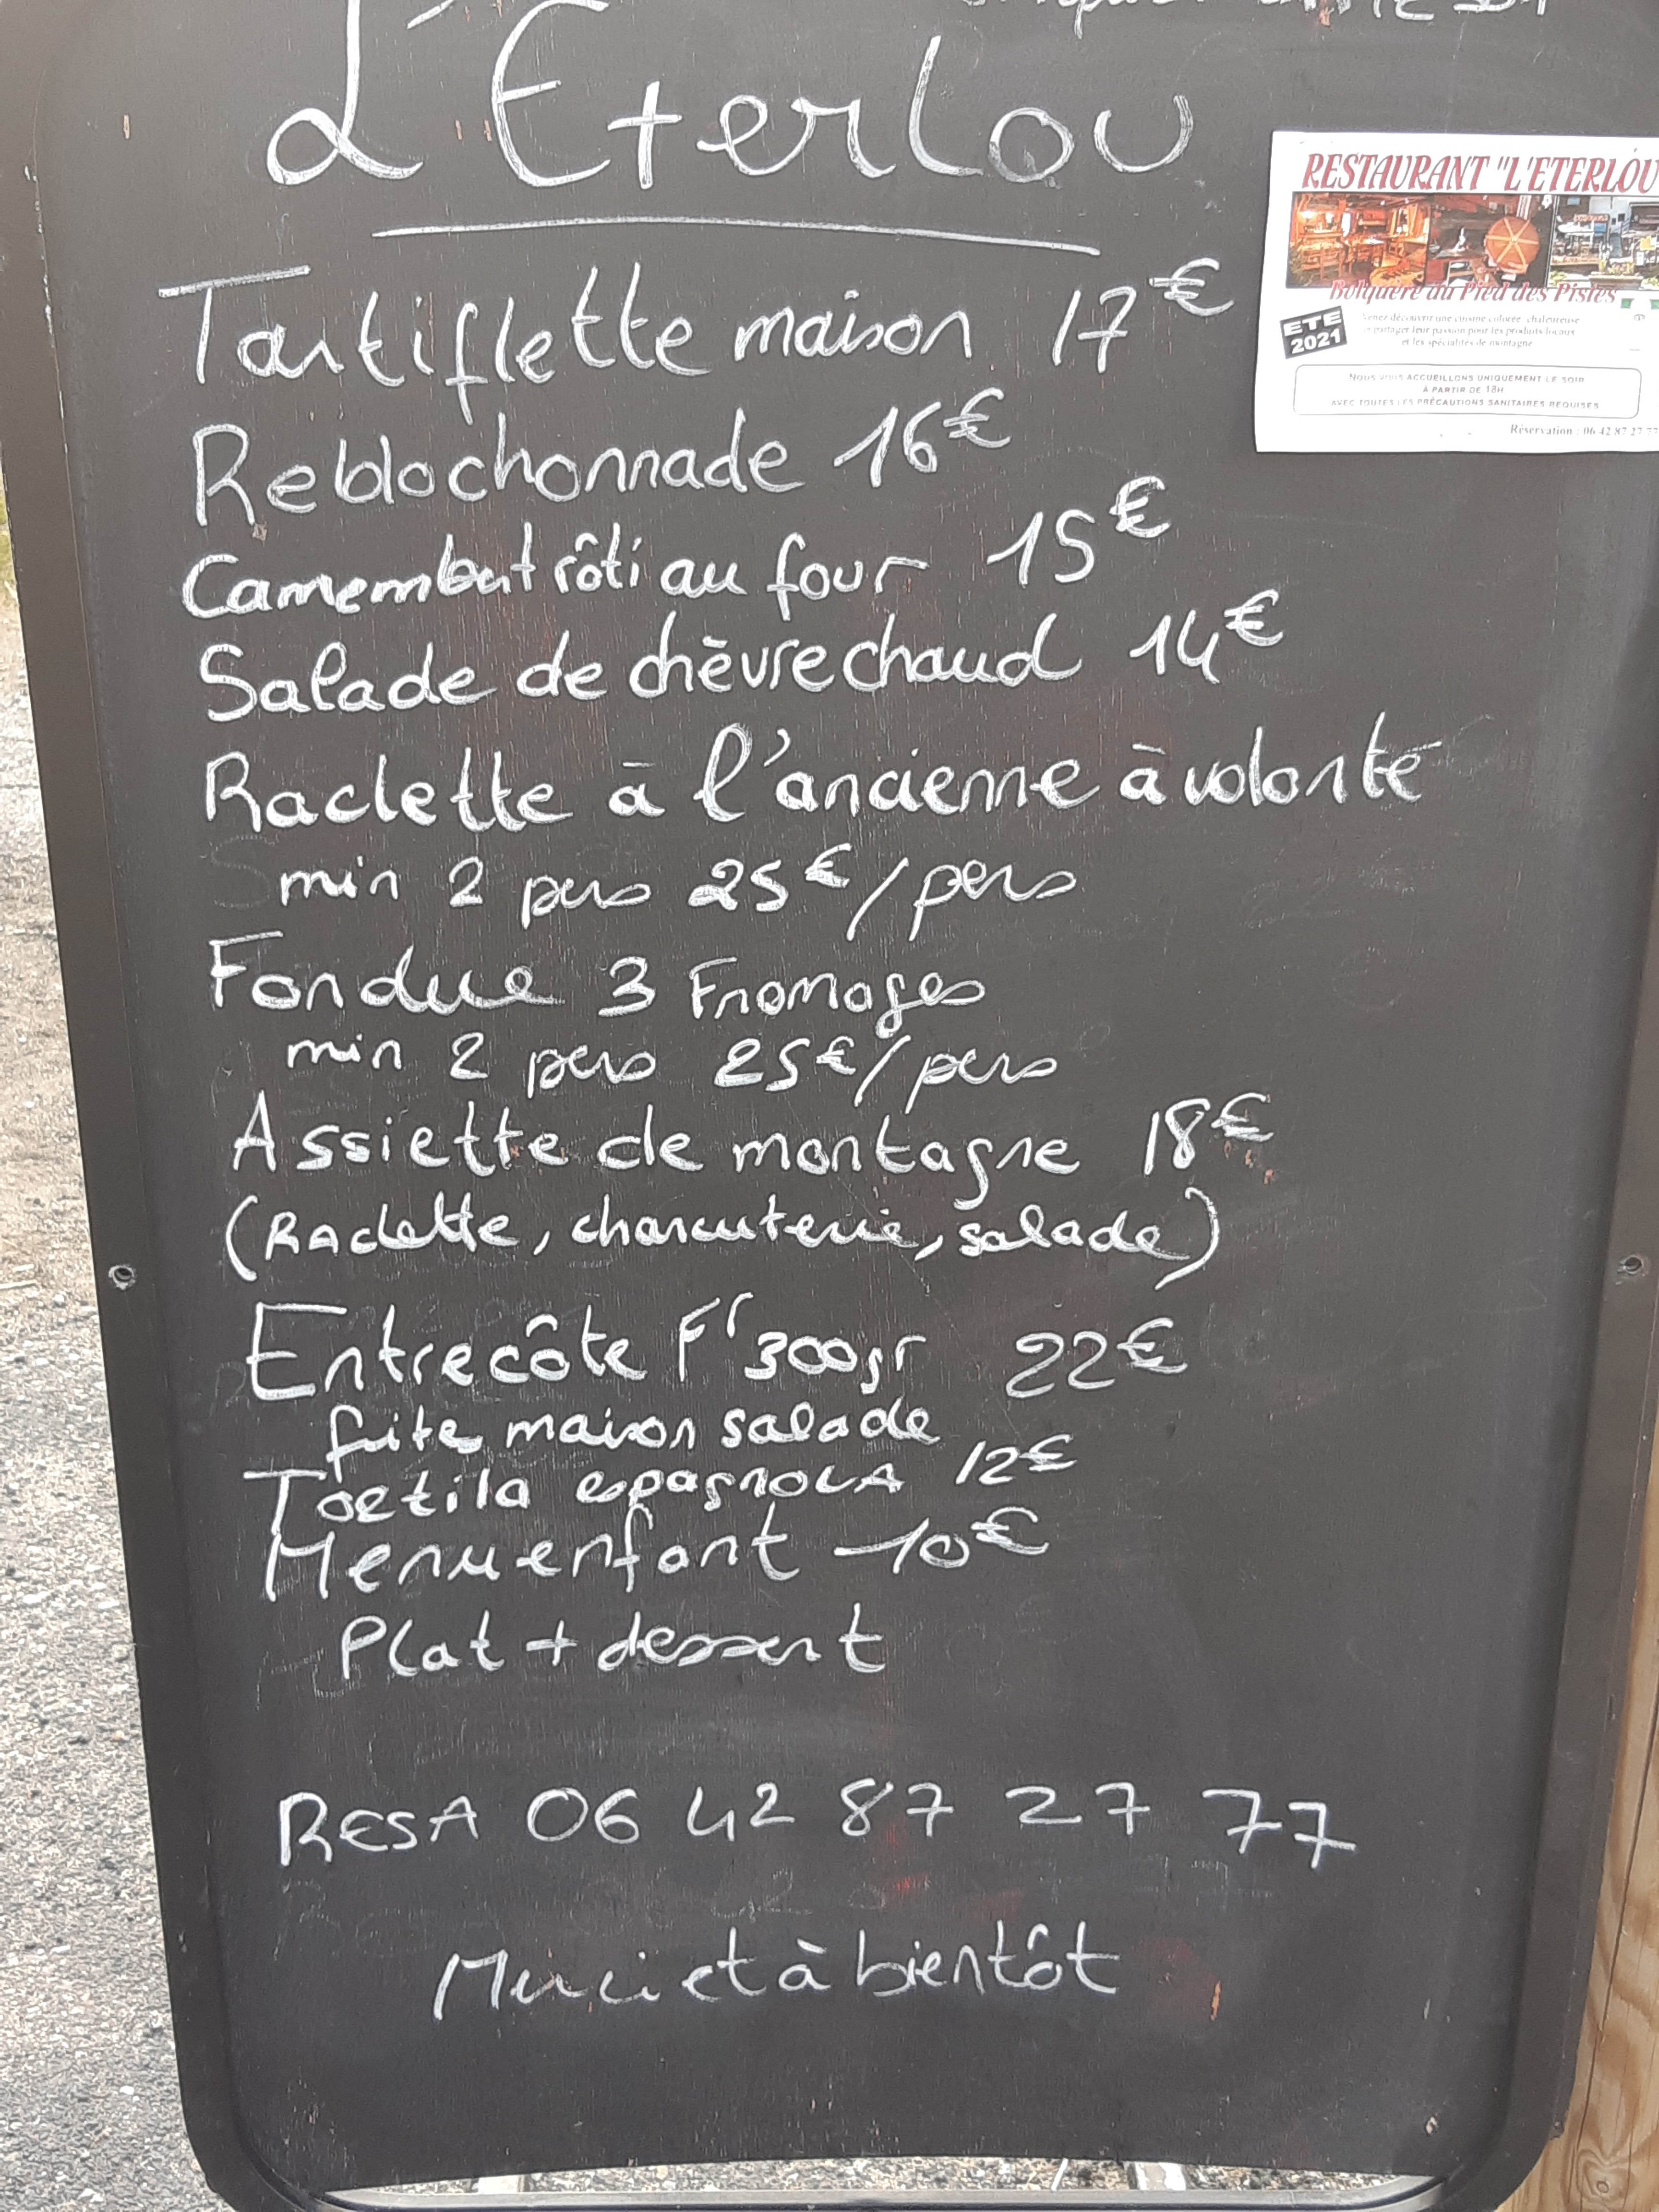 L'Eterlou
Tartiflette maison 17€
Reblochonnade 16€
Camembert rôti au four 15€
Salade de chèvre chaud 14€
Raclette à l'ancienne à volonté
min 2 pers 25€/pers
Fondue 3 Fromages
min 2 pers 25€/pers
Assiette de montagne 18€
(Raclette, charcuterie, salade)
Entrecôte Fr 300gr 22€
frite maison salade
Tortila espagnola 12€
Menu enfant 10€
Plat + dessert
RESA 06 42 87 27 77
Merci et à bientôt
RESTAURANT "L'ETERLOU
Bolquère au Pied des Pistes
ETE
2021
Venez découvrir une cuisine colorée, chaleureuse
et partager leur passion pour les produits locaux
et les spécialités de montagne
NOUS VOUS ACCUEILLONS UNIQUEMENT LE SOIR
A PARTIR DE 18H
AVEC TOUTES LES PRÉCAUTIONS SANITAIRES REQUISES
Réservation : 06 42 87 27 77